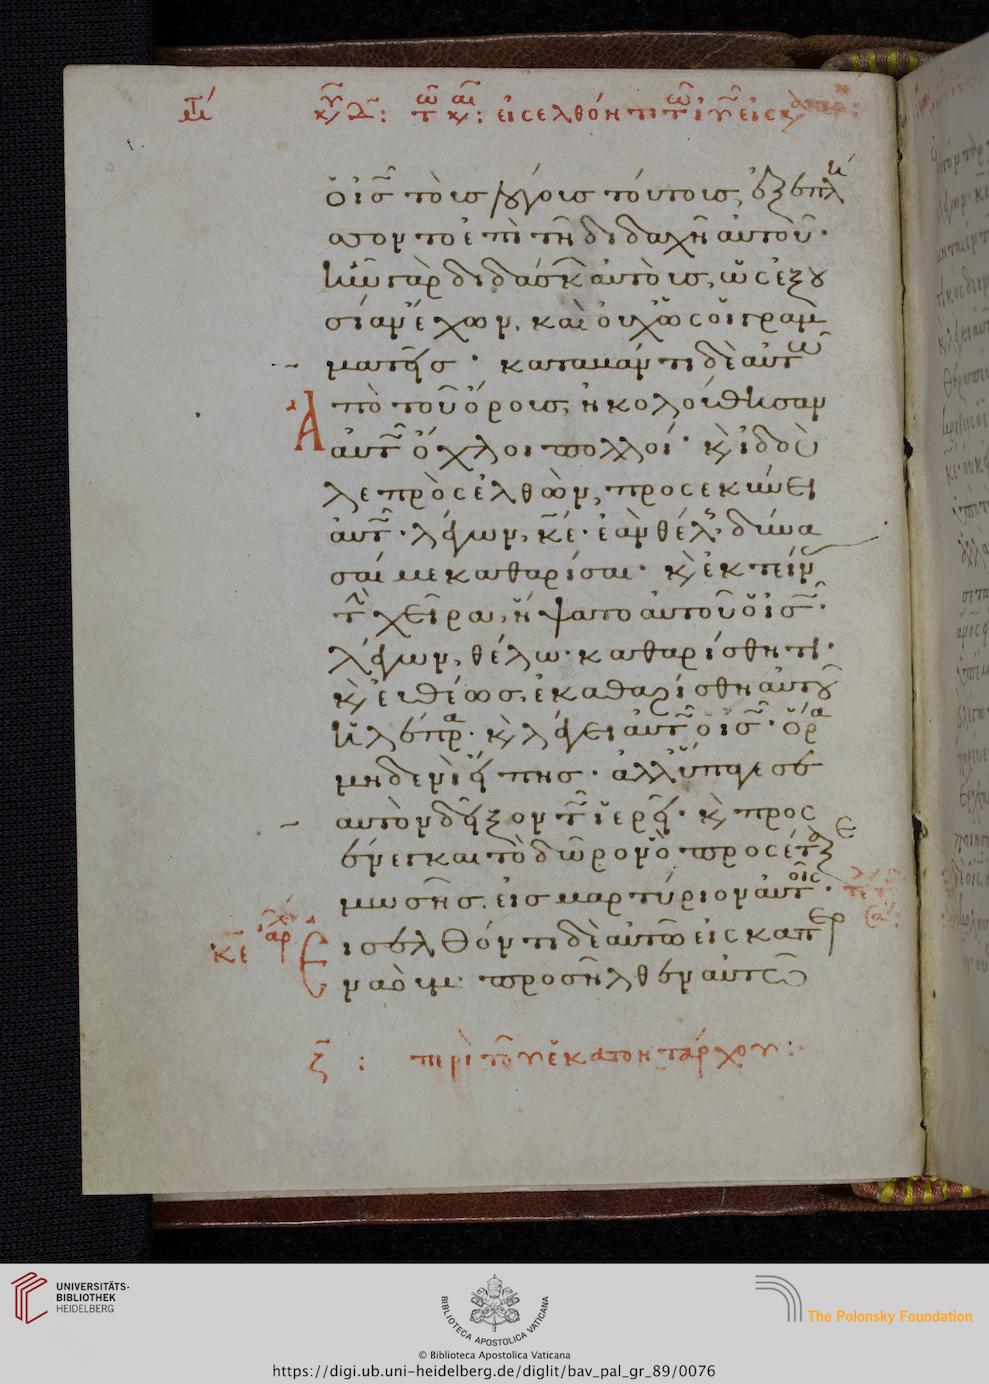 ὁ ἰς τοὺς λόγους τούτους, ἐξεπλή
σσοντο ἐπὶ τῇ διδαχῇ αὐτοῦ·
ἦν γὰρ διδάσκων αὐτοὺς, ὡς ἐξου
σίαν ἔχων, καὶ οὐχ ὡς οἱ γραμ
ματεῖς· καταβάντι δὲ αὐτῶ
Ἀπὸ τοῦ ὄρους, ἠκολούθησαν
αὐτῶ ὄχλοι πολλοί· κ̀ ἰδοὺ
λεπρὸς ἐλθὼν, προσεκύνει
αὐτῶ· λέγων, κε· ἐὰν θέλῃς, δύνα
σαί με καθαρίσαι· κ̀ ἐκτείνας
τὴν χεῖρα, ἥψατο αὐτοῦ ὁ ἰς·
λέγων, θέλω· καθαρίσθητι·
κ̀ εὐθέως, ἐκαθαρίσθη αὐτοῦ
ἡ λέπρα· κ̀ λέγει αὐτῶ ὁ ἰς· ὅρα
μηδενὶ εἴπῃς· ἀλλ' ὕπαγε σε
αυτὸν δεῖξον τῶ ἱερεῖ· κ̀ προσ
ένεγκαι τὸ δῶρον ὃ προσέταξε
μωσῆς, εἰς μαρτύριον αὐτοῖς·
Εἰσελθόντι δὲ αὐτῶ εἰς καπερ
ναούμ· προσῆλθεν αὐτῶ
ζ : περὶ τοῦ ἑκατοντάρχου :
UNIVERSITÄTS-
BIBLIOTHEK
HEIDELBERG
BIBLIOTECA APOSTOLICA VATICANA
The Polonsky Foundation
© Biblioteca Apostolica Vaticana
https://digi.ub.uni-heidelberg.de/diglit/bav_pal_gr_89/0076